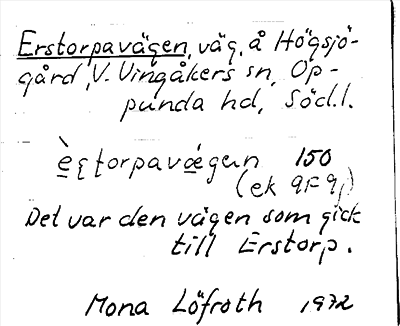 Erstorpavägen, väg, å Högsjö-
gård, V. Vingåkers sn, Op-
punda hd, Söd.l.
150
(ek 9F 9j)
Det var den vägen som gick
till Erstorp.
Mona Löfroth 1972